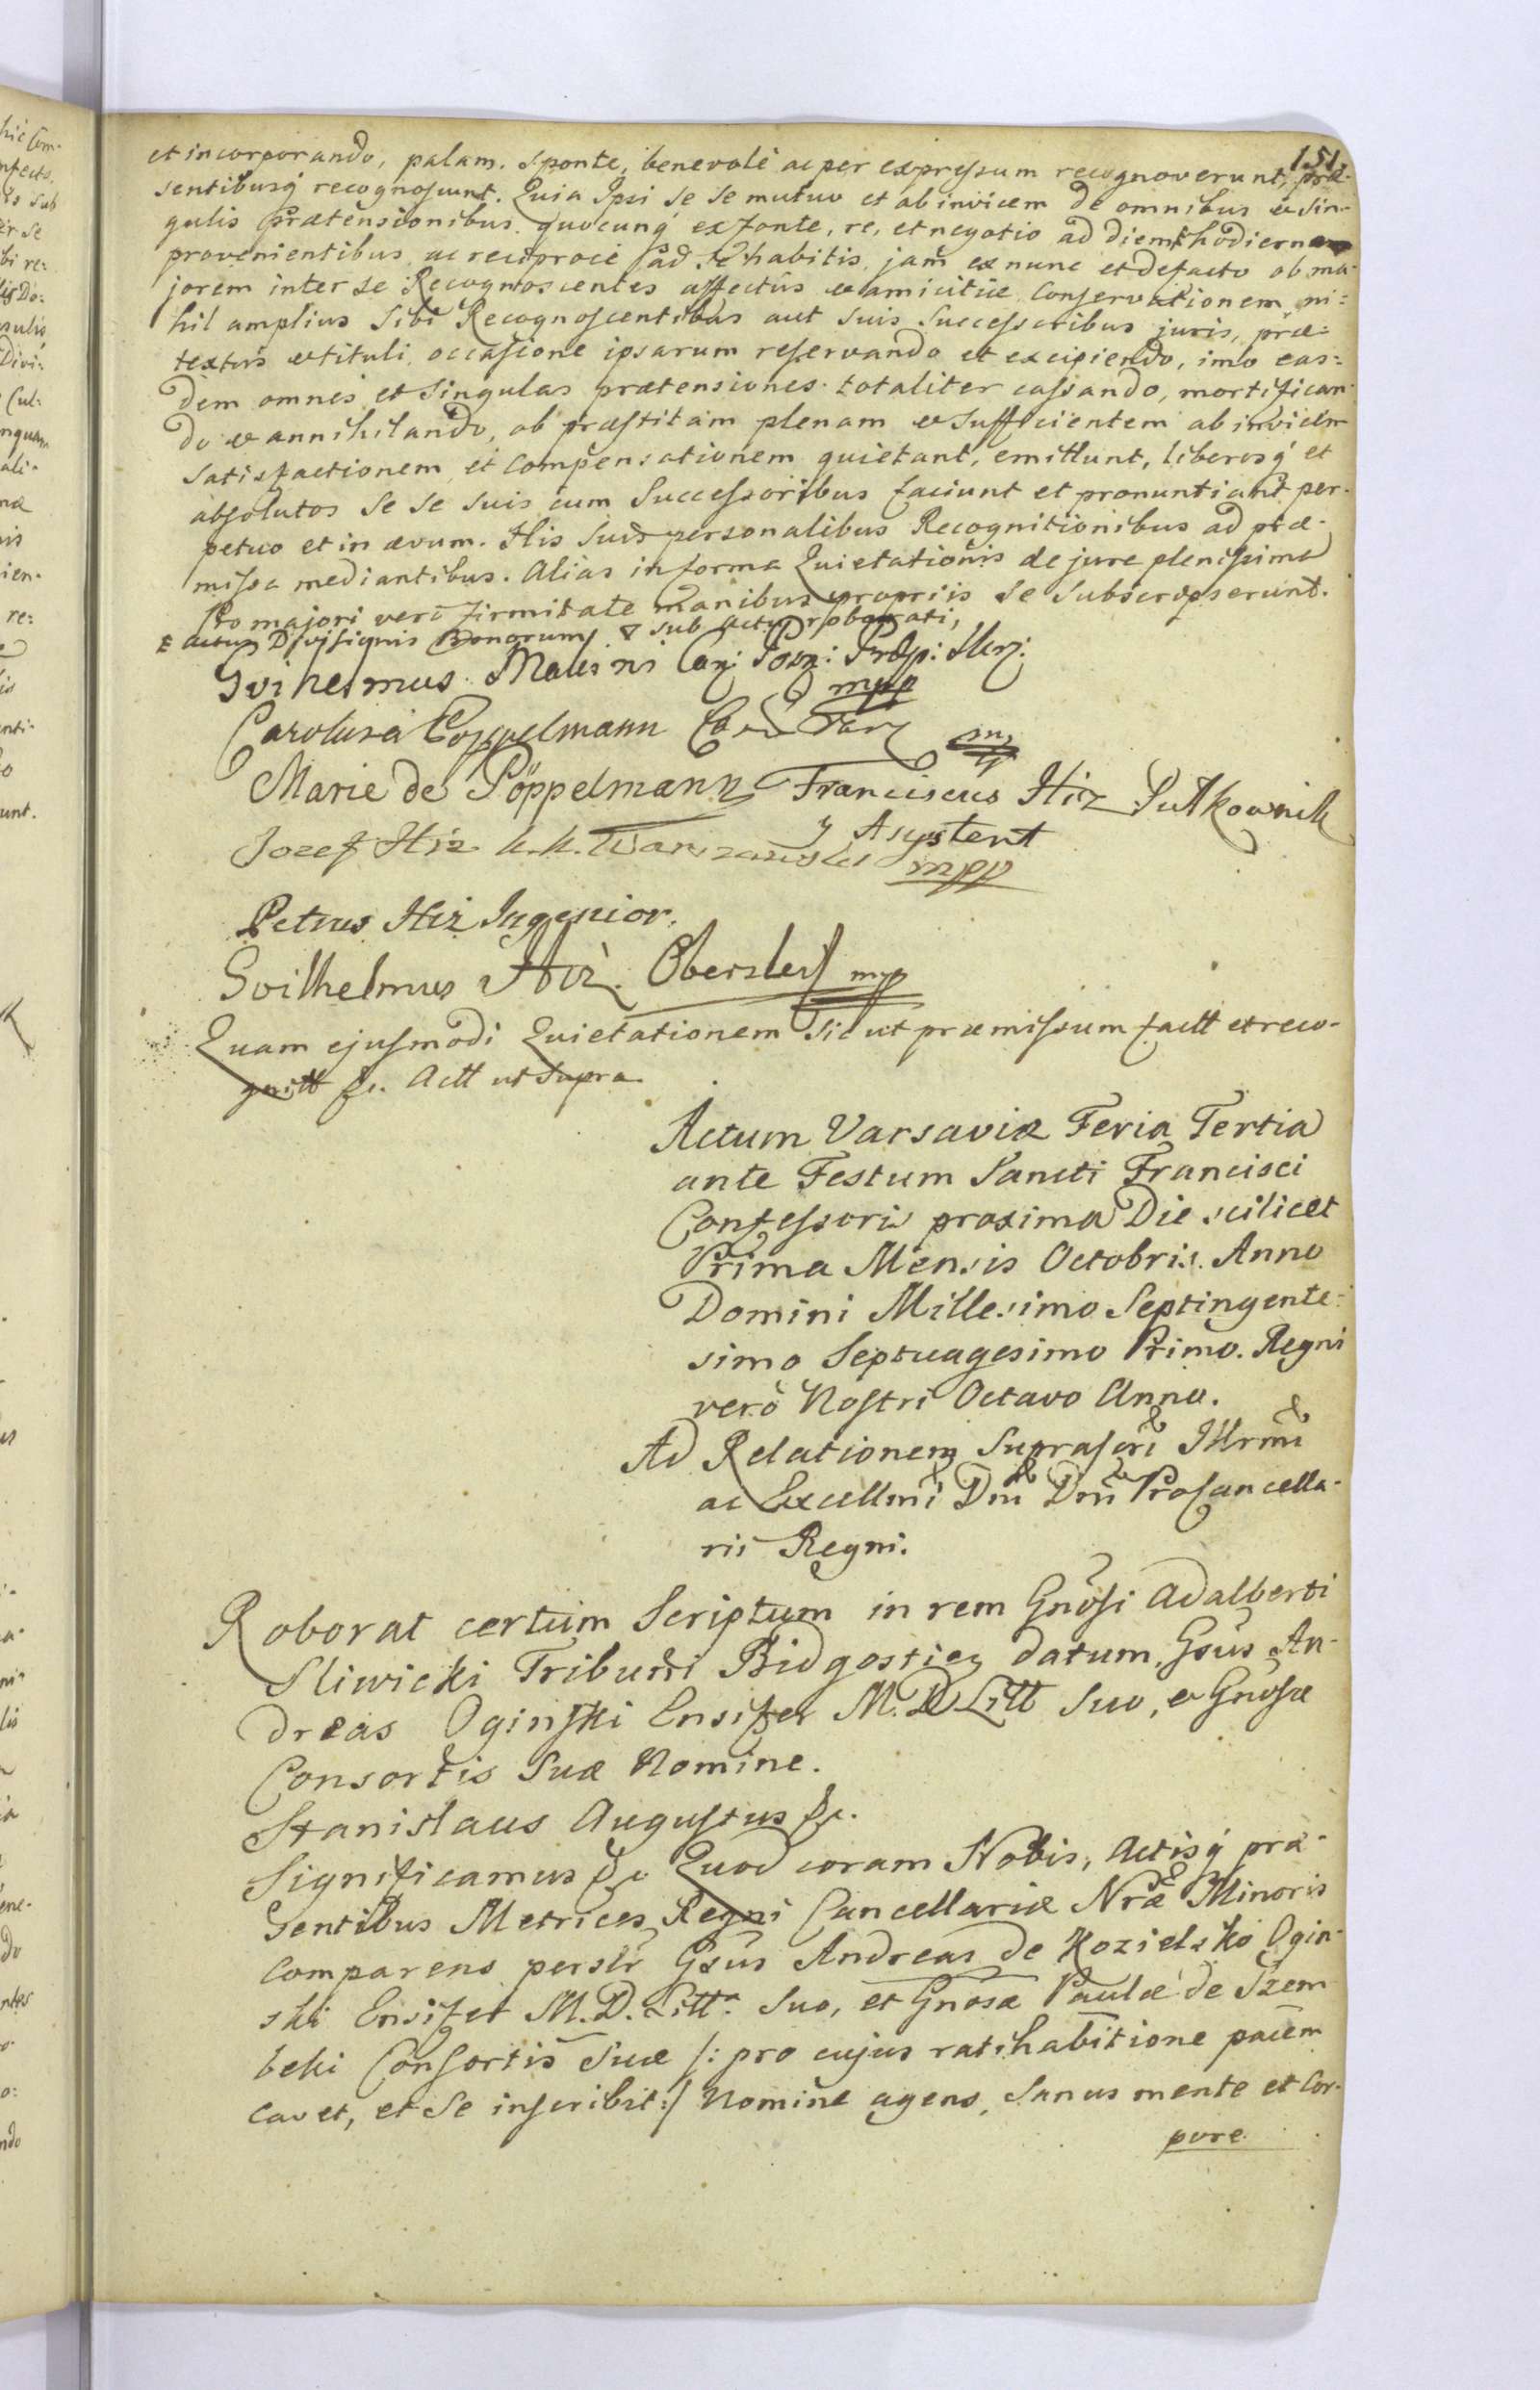 151.
et incorporando, palam. sponte, benevolè ac per expressum recognoverunt, præ-
sentibusq́ recognoscunt. Quia Ipsi se se mutuo et ab invicem de omnibus & sin-
gulis Prætensionibus quocunq́ ex fonte, re, et negotio ad diem hodiernam
provenientibus ac reciproce ad se habitis, jam ex nunc et defacto ob ma-
jorem inter se Recognoscentes affectûs & amicitiæ conservationem ni=
hil amplius sibi Recognoscentibus aut suis successoribus juris, præ=
textûs & tituli occasione ipsarum reservando et excipiendo, imo eas=
dem omnes et singulas prætensiones totaliter cassando, mortifican-
do & annihilando, ob præstitam plenam & sufficientem ab invicem
satisfactionem et compensationem quietant, emittunt, liberosq́ et
absolutos se se suis cum Successoribus faciunt et pronuntiant per-
petuo et in ævum. His suis personalibus Recognitionibus ad præ-
missa mediantibus. Alias in forma Quietationis de jure plenissima
Pro majori verò firmitate manibus propriis se subscripserunt.
actus Divisionis Bonorum sub actu roborati,
Gvihelmus Malsini Can: Posn: Præp: Mer:
mpp
Carolina Poeppelmann
Marie de Pöppelmann Franciscus Hiz Pułkownik
y Asystent
Jozef Hiz K.K. Warszawski mpp
Petrus Hiż Ingenior.
Gvilhelmus Hiż. Oberster mp
Quam ejusmodi Quietationem sic ut præmissum factt et reco-
gnitt &c. Actt ut supra.
Actum Varsaviæ Feria Tertia
ante Festum Sancti Francisci
Confessoris proxima Die scilicet
Prima Mensis Octobris. Anno
Domini Millesimo Septingente-
simo Septuagesimo Primo. Regni
verò Nostri Octavo Anno.
Ad Relationem Suprascri Illrmi
ac Excellmi Dni Dni Procancella-
rii Regni.
Roborat certum Scriptum in rem Gnosi Adalberti
Sliwicki Tribuni Bidgostien datum, Gsus An-
dreas Oginski Ensifer M.D Litt suo, & Gnosæ
Consortis suæ Nomine.
Stanislaus Augustus &c.
Significamus &c Quod coram Nobis, Actisq́ præ-
sentibus Metrices Regni Cancellariæ Nræ Minoris
comparens persltr Gsus Andreas de Kozielsko Ogin-
ski Ensifer M.D. Litt. suo, et Gnosæ Paulæ de Szem
beki Consortis suæ /: pro cujus ratihabitione pacem
cavet, et se inscribit:/ Nomine agens, sanus mente et cor-
pore